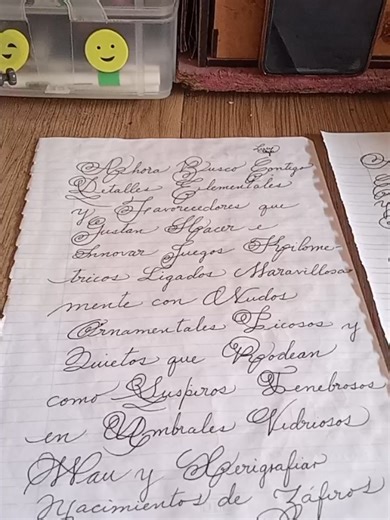 Ahora Busco Contigo
Detalles Elementales
y Favorecedores que
Gustan Hacer e
Innovar Juegos Kilome-
tricos Ligados Maravillosa
mente con Nudos
Ornamentales Picosos y
Quietos que Rodean
como Suspiros Tenebrosos
en Umbrales Vidriosos
Wau y Xerigrafiar
Yacimientos de Záfiros